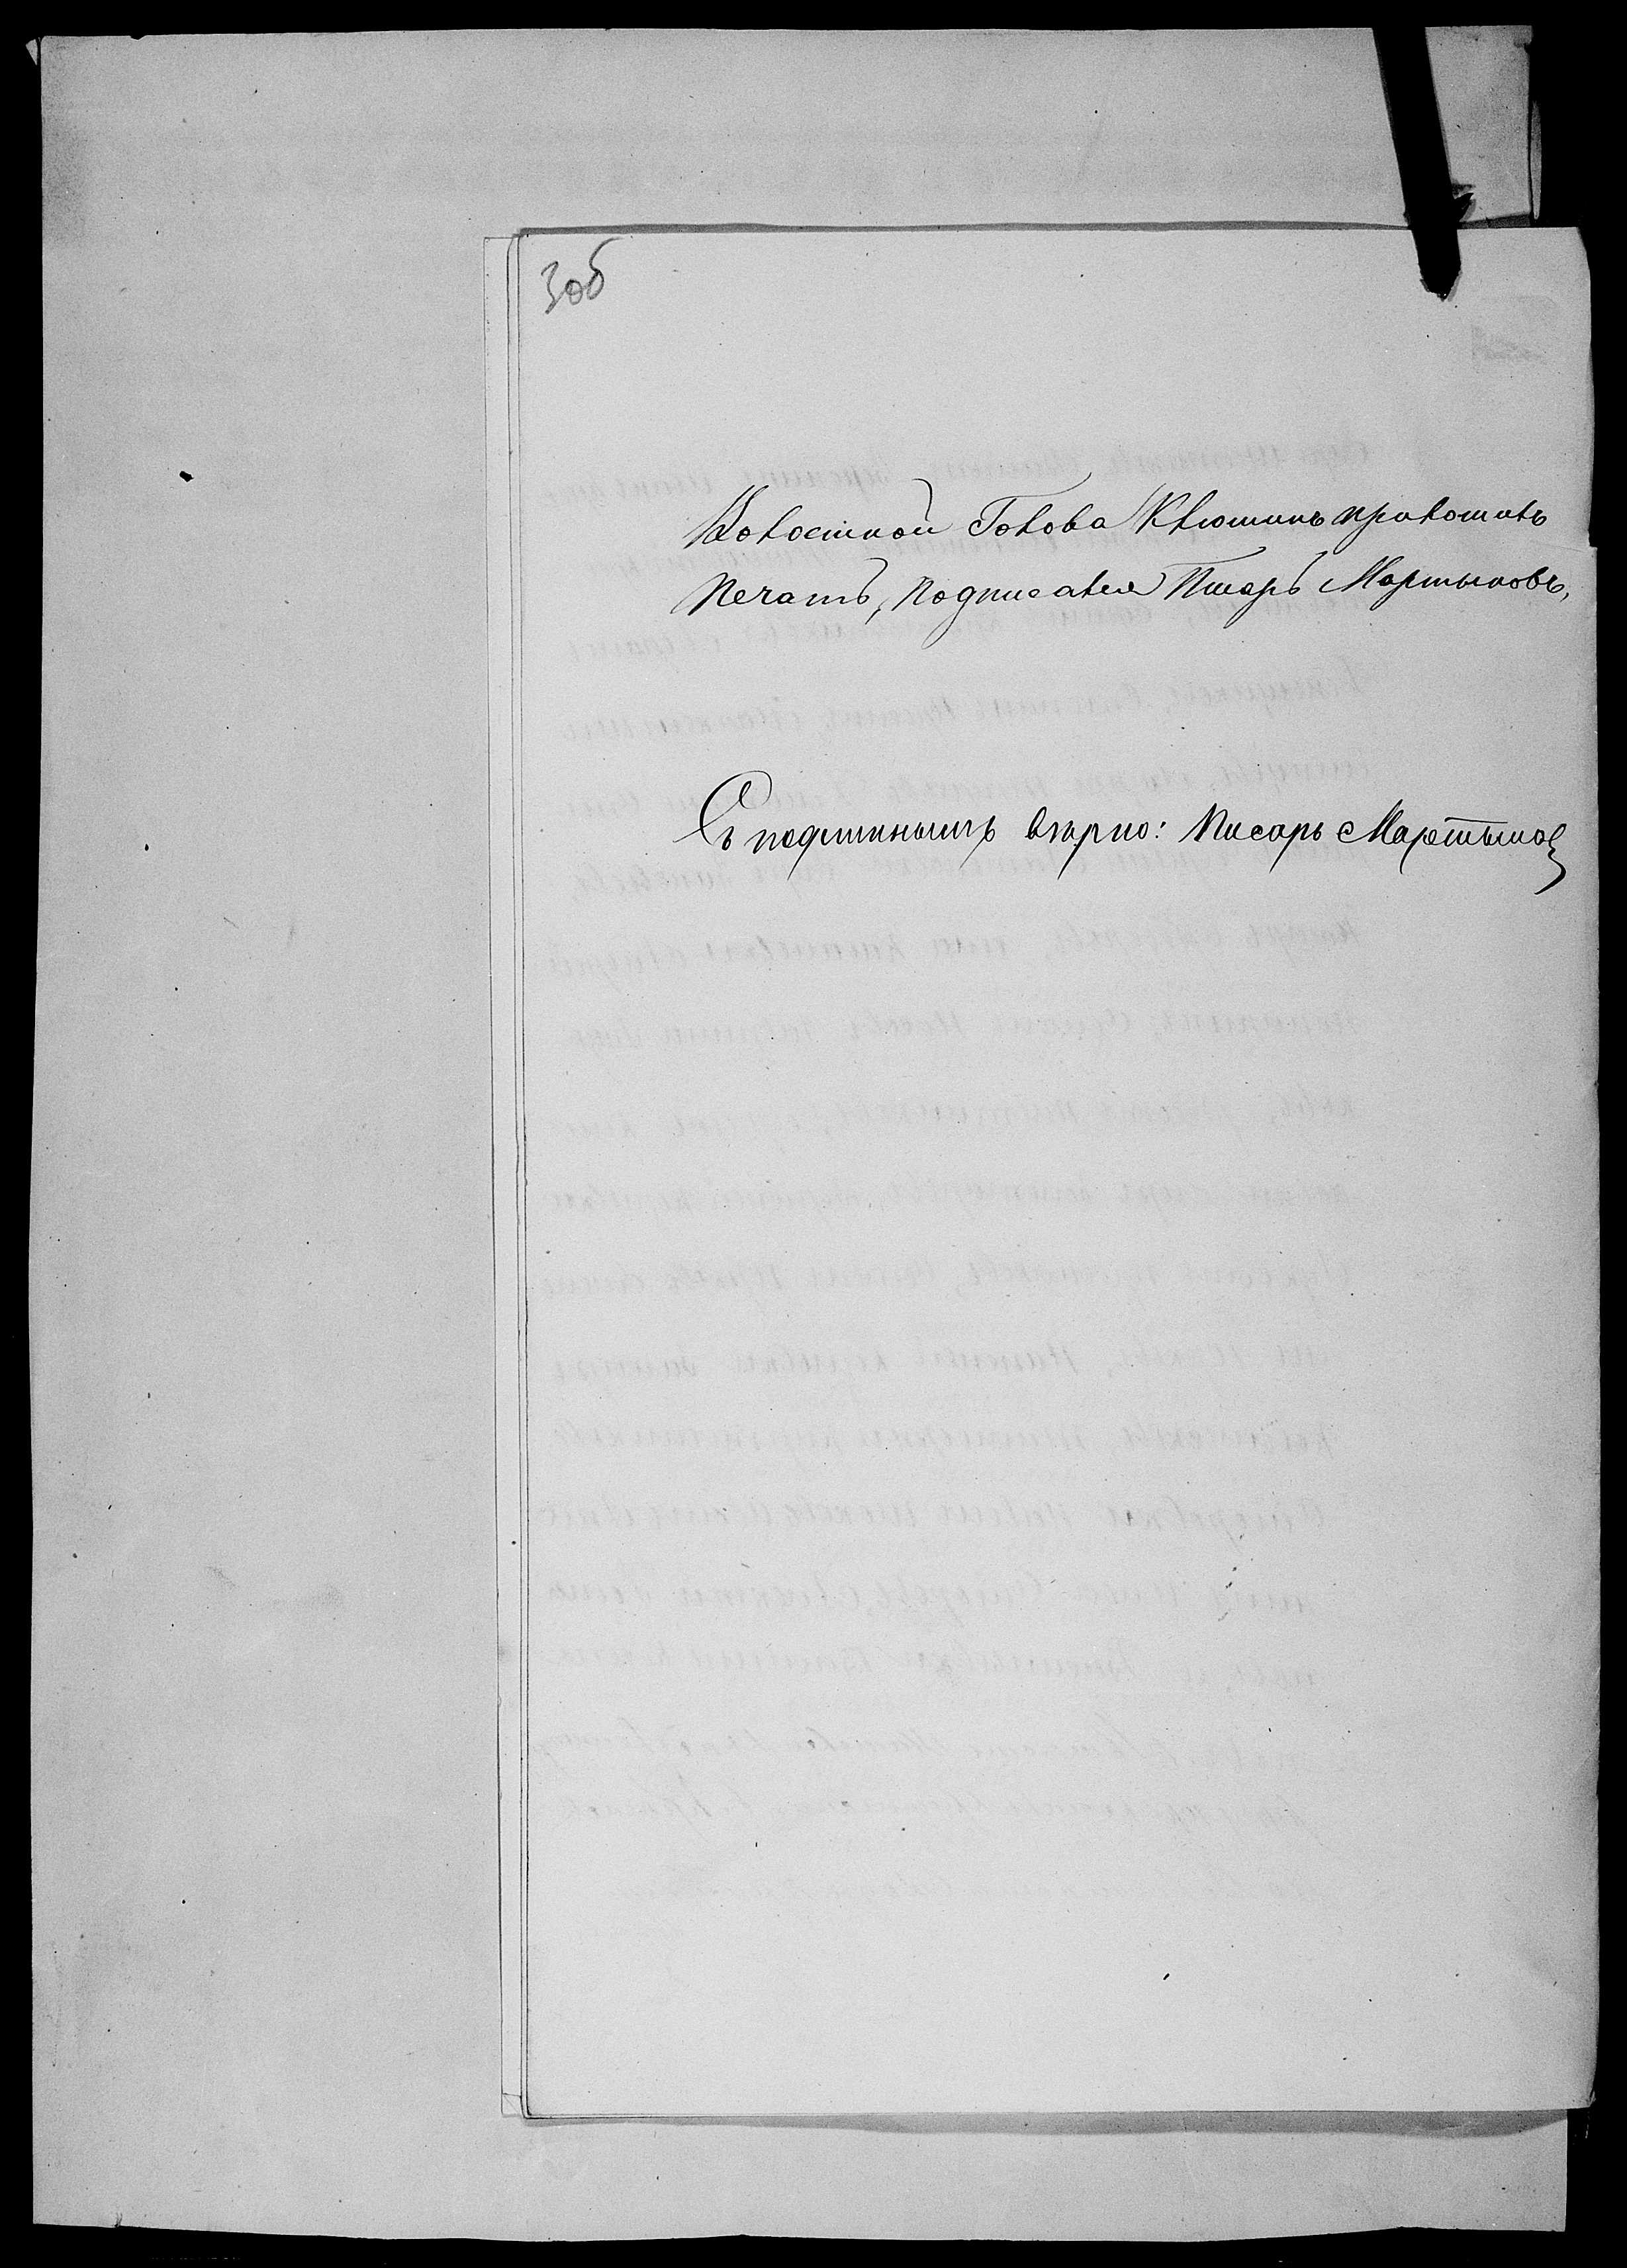 3об
Волостной Голова Клюшинъ приложилъ
печать, подписался Писарь Мартыновъ,
Съ подлиннымъ вѣрно: Писарь Мартынов